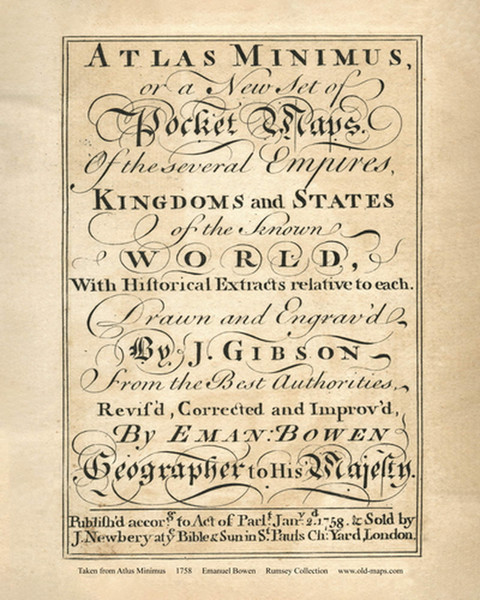 ATLAS MINIMUS,
or a New Set of
Pocket Maps.
Of the several Empires,
KINGDOMS and STATES
of the known
WORLD,
With Hiſtorical Extracts relative to each.
Drawn and Engrav'd
By J. GIBSON
From the Best Authorities,
Reviſ'd, Corrected and Improv'd,
By EMAN: BOWEN
Geographer to His Majeſty.
Publiſh'd accorg. to Act of Parlt. Jany. 2d. 1758. & Sold by
J. Newbery at ye Bible & Sun in St. Pauls Ch: Yard, London.
Taken from Atlus Minimus 1758 Emanuel Bowen Rumsey Collection www.old-maps.com